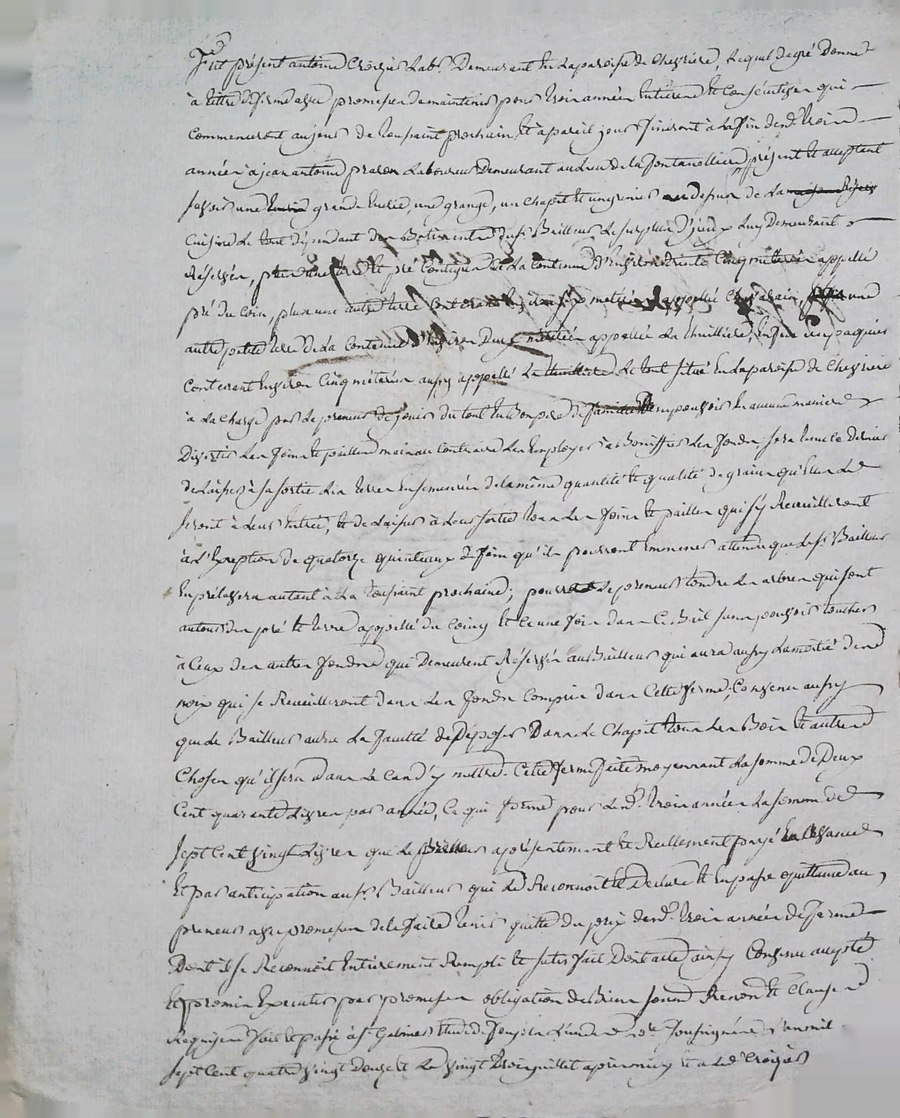 Fut présent antoine Croizier Labr. Demeurant En Laparoisse de Chevriere, Lequel degré Donne
à tittre deferme avec promesse de maintenir pour trois années Entieres Et Consécutives qui
Commenceront aujour de toussaint prochain Et apareil jour finiront à la fin desd. trois
années à jean antoine Laboureur Demeurant au Lieu de la présent Et acceptant
savoir une grande Ecurie, une grange, un Chapit Et un grenier audessus de La
Cuisine Le tout dépendant des Batiments dud. Sr Bailleur Le surplus D'iceux Luy Demeurant
Réservés, plus une terre Et pré Contigus De La Contenue D'Environ trente Cinq méterées appellé
pré du Coin, plus une autre terre Contenant Environ six meterées appellée, une
autre petite terre De La Contenue D'Environ Deux meterées appellée La thuilliere, Enfin un paquier
Contenant Environ Cinq méterées aussy appellé La thuilliere Le tout situé En Laparoisse de Chevriere
à La Charge par Le preneur de jouir du tout En Bon pere de famille sans pouvoir En aucune maniere
Divertir Les foins Et pailles mais au Contraire Les Employer à Bonniffier Les fonds, sera tenu Ce Dernier
De Laisser à sa sortie Les terres Ensemencées de la même quantité Et qualité de grains qu'Elles Le
seront à Leur Entrée, Et de Laisser à Leur sortie tous Les foins Et pailles qui s'y Recueilleront
à L'Exception de quatorze quinteaux de foin qu'ils pourront Emmener attendu que Led. Sr Bailleur
En prélevera autant à La toussaint prochaine; pourra Le preneur tondre Les arbres qui sont
autour des pré Et terre appellé du Coin Et Ce une fois dans Ce Bail sans pouvoir toucher
à Ceux des autres fonds qui Demeurent Réservés au Bailleur qui aura aussy La moitié des
noix qui se Recueilleront dans Les fonds Compris dans Cette ferme, Convenu aussy
que Le Bailleur aura La faculté de Déposer Dans Le Chapit tous Les Bois Et autres
Choses qu'il sera dans le Cas d'y mettre. Cette ferme faite moyennant La somme de Deux
Cent quarante Livres par année, Ce qui forme pour Lesd. trois années La somme de
sept Cent vingt Livres que Le preneur a présentement Et Reellement payé
Et par anticipation aud. Sr Bailleur qui Le Reconnoit Le Declare Et En passe quittance au
preneur avec promesse de le faire tenir quitte du prix desd. trois années de ferme
Dont il se Reconnoit Entierement Rempli Et satisfait Dont acte ainsy Convenu accepté
Et promis Executer par promesse obligation de Biens soumd. Renond. Et Clauses
Requises fait Et passé à St Galmier Etude de L'un des nores soussignés L'an mil
sept Cent quatre vingt douze Le vingt trois juillet après midy Et a Led. Croizier